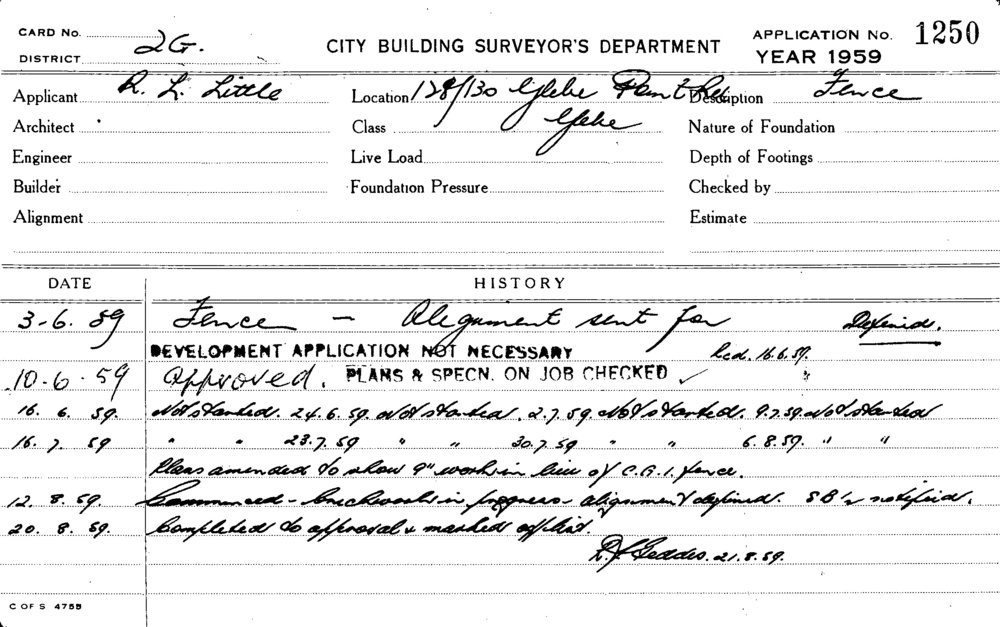 CARD No. 2G. CITY BUILDING SURVEYOR'S DEPARTMENT APPLICATION No. 1250
DISTRICT YEAR 1959
Applicant R. L. Little Location 128/130 Glebe Point Rd Description Fence
Architect Class Glebe Nature of Foundation
Engineer Live Load Depth of Footings
Builder Foundation Pressure Checked by
Alignment Estimate
DATE HISTORY
3-6.59 Fence — Alignment sent for Defined.
DEVELOPMENT APPLICATION NOT NECESSARY Rcd. 16.6.59.
10-6-59 Approved. PLANS & SPECN. ON JOB CHECKED ✓
16. 6. 59. Not started. 24.6.59. Not started. 2.7.59. Not started. 9.7.59. Not started
16. 7. 59 " " 23.7.59 " " 30.7.59 " " 6.8.59. " "
Plans amended to show 9" work in lieu of C.G.I. fence.
12. 8. 59. Commenced - brickwork in progress - alignment defined. SB's notified.
20. 8. 59. Completed to approval & marked off list.
R. J. Geddes. 21.8.59.
C OF S 4755